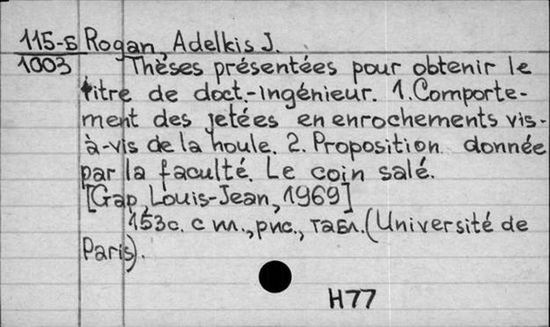 115-Б Rogan, Adelkis J.
1003 Thèses présentées pour obtenir le
titre de doct.-ingénieur. 1. Comporte-
ment des jetées en enrochements vis-
à-vis de la houle. 2. Proposition donnée
par la faculté. Le coin salé.
[Gap, Louis-Jean, 1969]
153с. с ил., рис., табл. (Université de
Paris).
H77